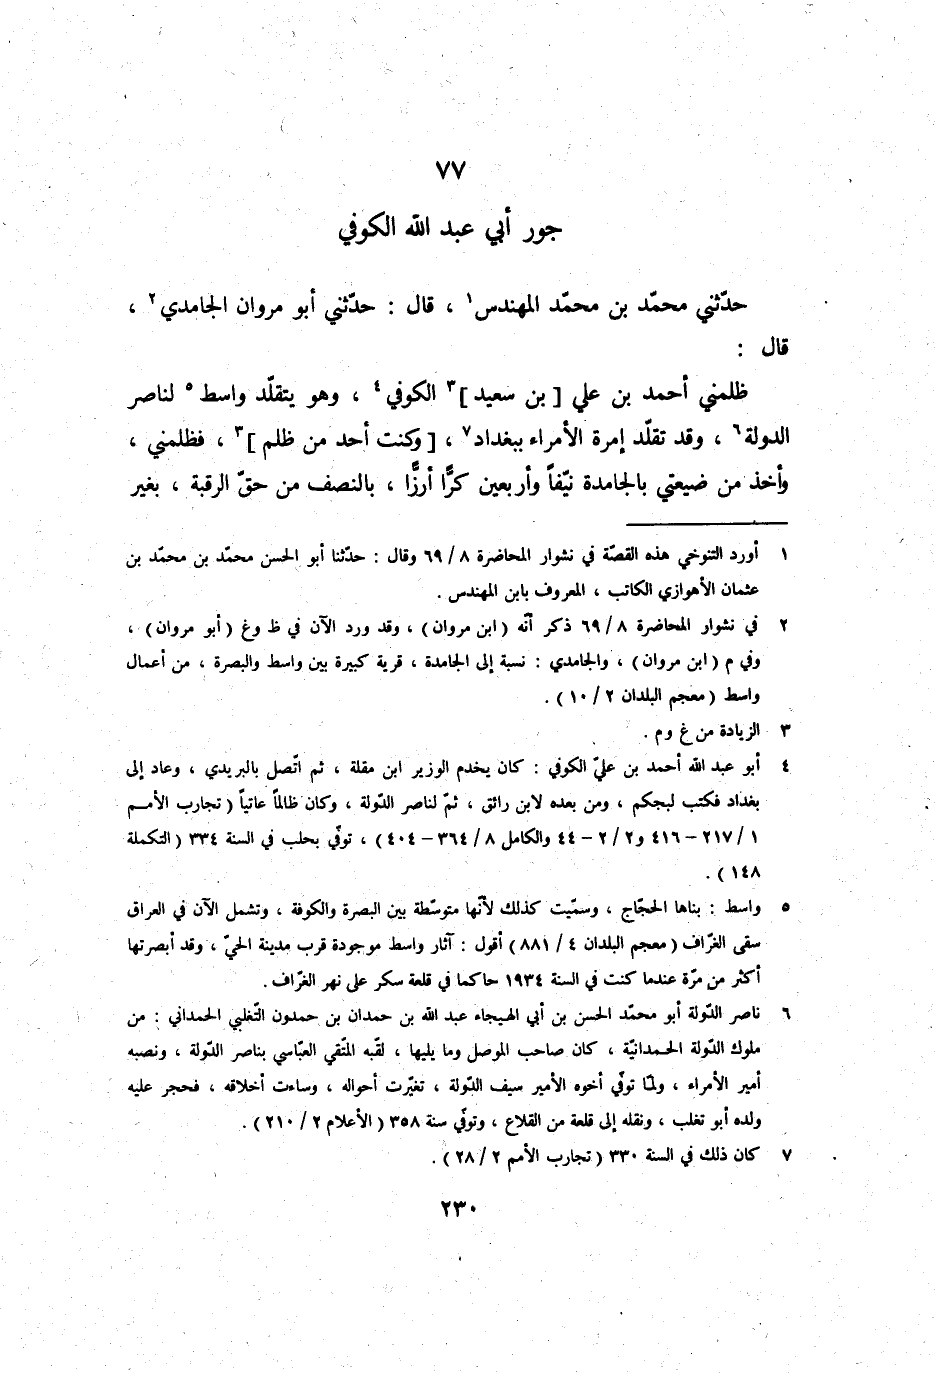 ٧٧
جور أبي عبد الله الكوفي
حدّثني محمّد بن محمّد المهندس١ ، قال : حدّثني أبو مروان الجامدي٢ ،
قال :
ظلمني أحمد بن علي [ بن سعيد ]٣ الكوفي٤ ، وهو يتقلّد واسط٥ لناصر
الدولة٦ ، وقد تقلّد إمرة الأمراء ببغداد٧ ، [ وكنت أحد من ظلم ]٣ ، فظلمني ،
وأخذ من ضيعتي بالجامدة نيّفاً وأربعين كرًّا أرزًّا ، بالنصف من حقّ الرقبة ، بغير
١ أورد التنوخي هذه القصّة في نشوار المحاضرة ٨ / ٦٩ وقال : حدّثنا أبو الحسن محمّد بن محمّد بن
عثمان الأهوازي الكاتب ، المعروف بابن المهندس .
٢ في نشوار المحاضرة ٨ / ٦٩ ذكر أنّه ( ابن مروان ) ، وقد ورد الآن في ظ وغ ( أبو مروان ) ،
وفي م ( ابن مروان ) ، والجامدي : نسبة إلى الجامدة ، قرية كبيرة بين واسط والبصرة ، من أعمال
واسط ( معجم البلدان ٢ / ١٠ ) .
٣ الزيادة من غ وم .
٤ أبو عبد الله أحمد بن عليّ الكوفي : كان يخدم الوزير ابن مقلة ، ثم اتّصل بالبريدي ، وعاد إلى
بغداد فكتب لبجكم ، ومن بعده لابن رائق ، ثمّ لناصر الدّولة ، وكان ظالماً عاتياً ( تجارب الأمـم
١ / ٢١٧ – ٤١٦ و٢ / ٢ – ٤٤ والكامل ٨ / ٣٦٤ – ٤٠٤ ) ، توفّي بحلب في السنة ٣٣٤ ( التكملة
١٤٨ ) .
٥ واسط : بناها الحجّاج ، وسمّيت كذلك لأنّها متوسّطة بين البصرة والكوفة ، وتشمل الآن في العراق
سقى الغرّاف ( معجم البلدان ٤ / ٨٨١ ) أقول : آثار واسط موجودة قرب مدينة الحيّ ، وقد أبصرتها
أكثر من مرّة عندما كنت في السنة ١٩٣٤ حاكما في قلعة سكر على نهر الغرّاف .
٦ ناصر الدّولة أبو محمّد الحسن بن أبي الهيجاء عبد الله بن حمدان بن حمدون التّغلبي الحمداني : من
ملوك الدّولة الحـمدانيّة ، كان صاحب الموصل وما يليها ، لقّبه المتّقي العبّاسي بناصر الدّولة ، ونصبه
أمير الأمراء ، ولمّا توفّي أخوه الأمير سيف الدّولة ، تغيّرت أحواله ، وساءت أخلاقه ، فحجر عليه
ولده أبو تغلب ، ونقله إلى قلعة من القلاع ، وتوفّي سنة ٣٥٨ ( الأعلام ٢ / ٢١٠ ) .
٧ كان ذلك في السنة ٣٣٠ ( تجارب الأمم ٢ / ٢٨ ) .
٢٣٠